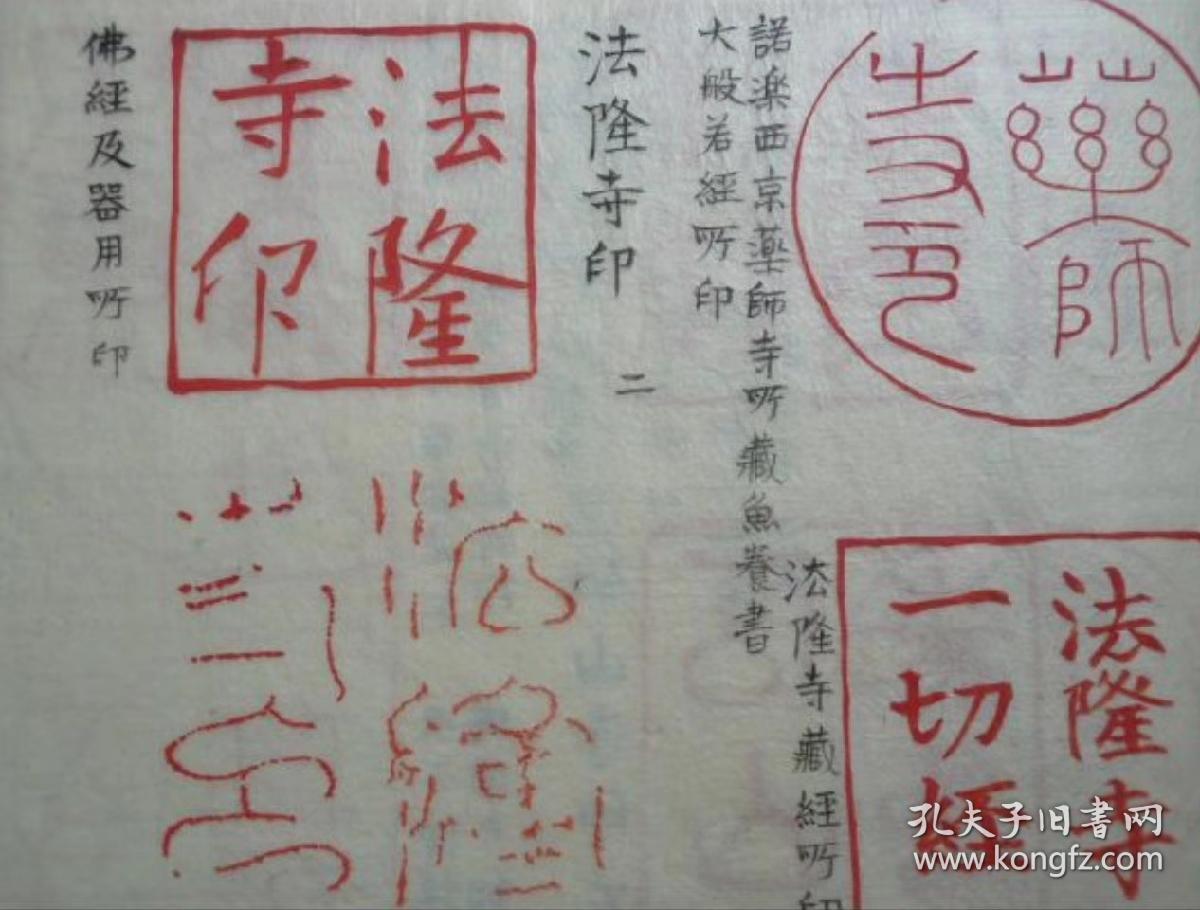 藥師
寺印
諾楽西京薬師寺所藏魚養書
大般若經所印
法隆寺印 二
法隆
寺印
佛經及器用所印
法隆寺
一切經
法隆寺藏經所印
孔夫子旧书网
www.kongfz.com